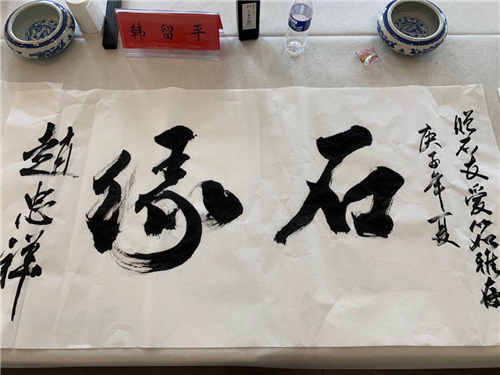 韩留平
石友爱 雅存
庚子年夏
石缘
趙忠祥